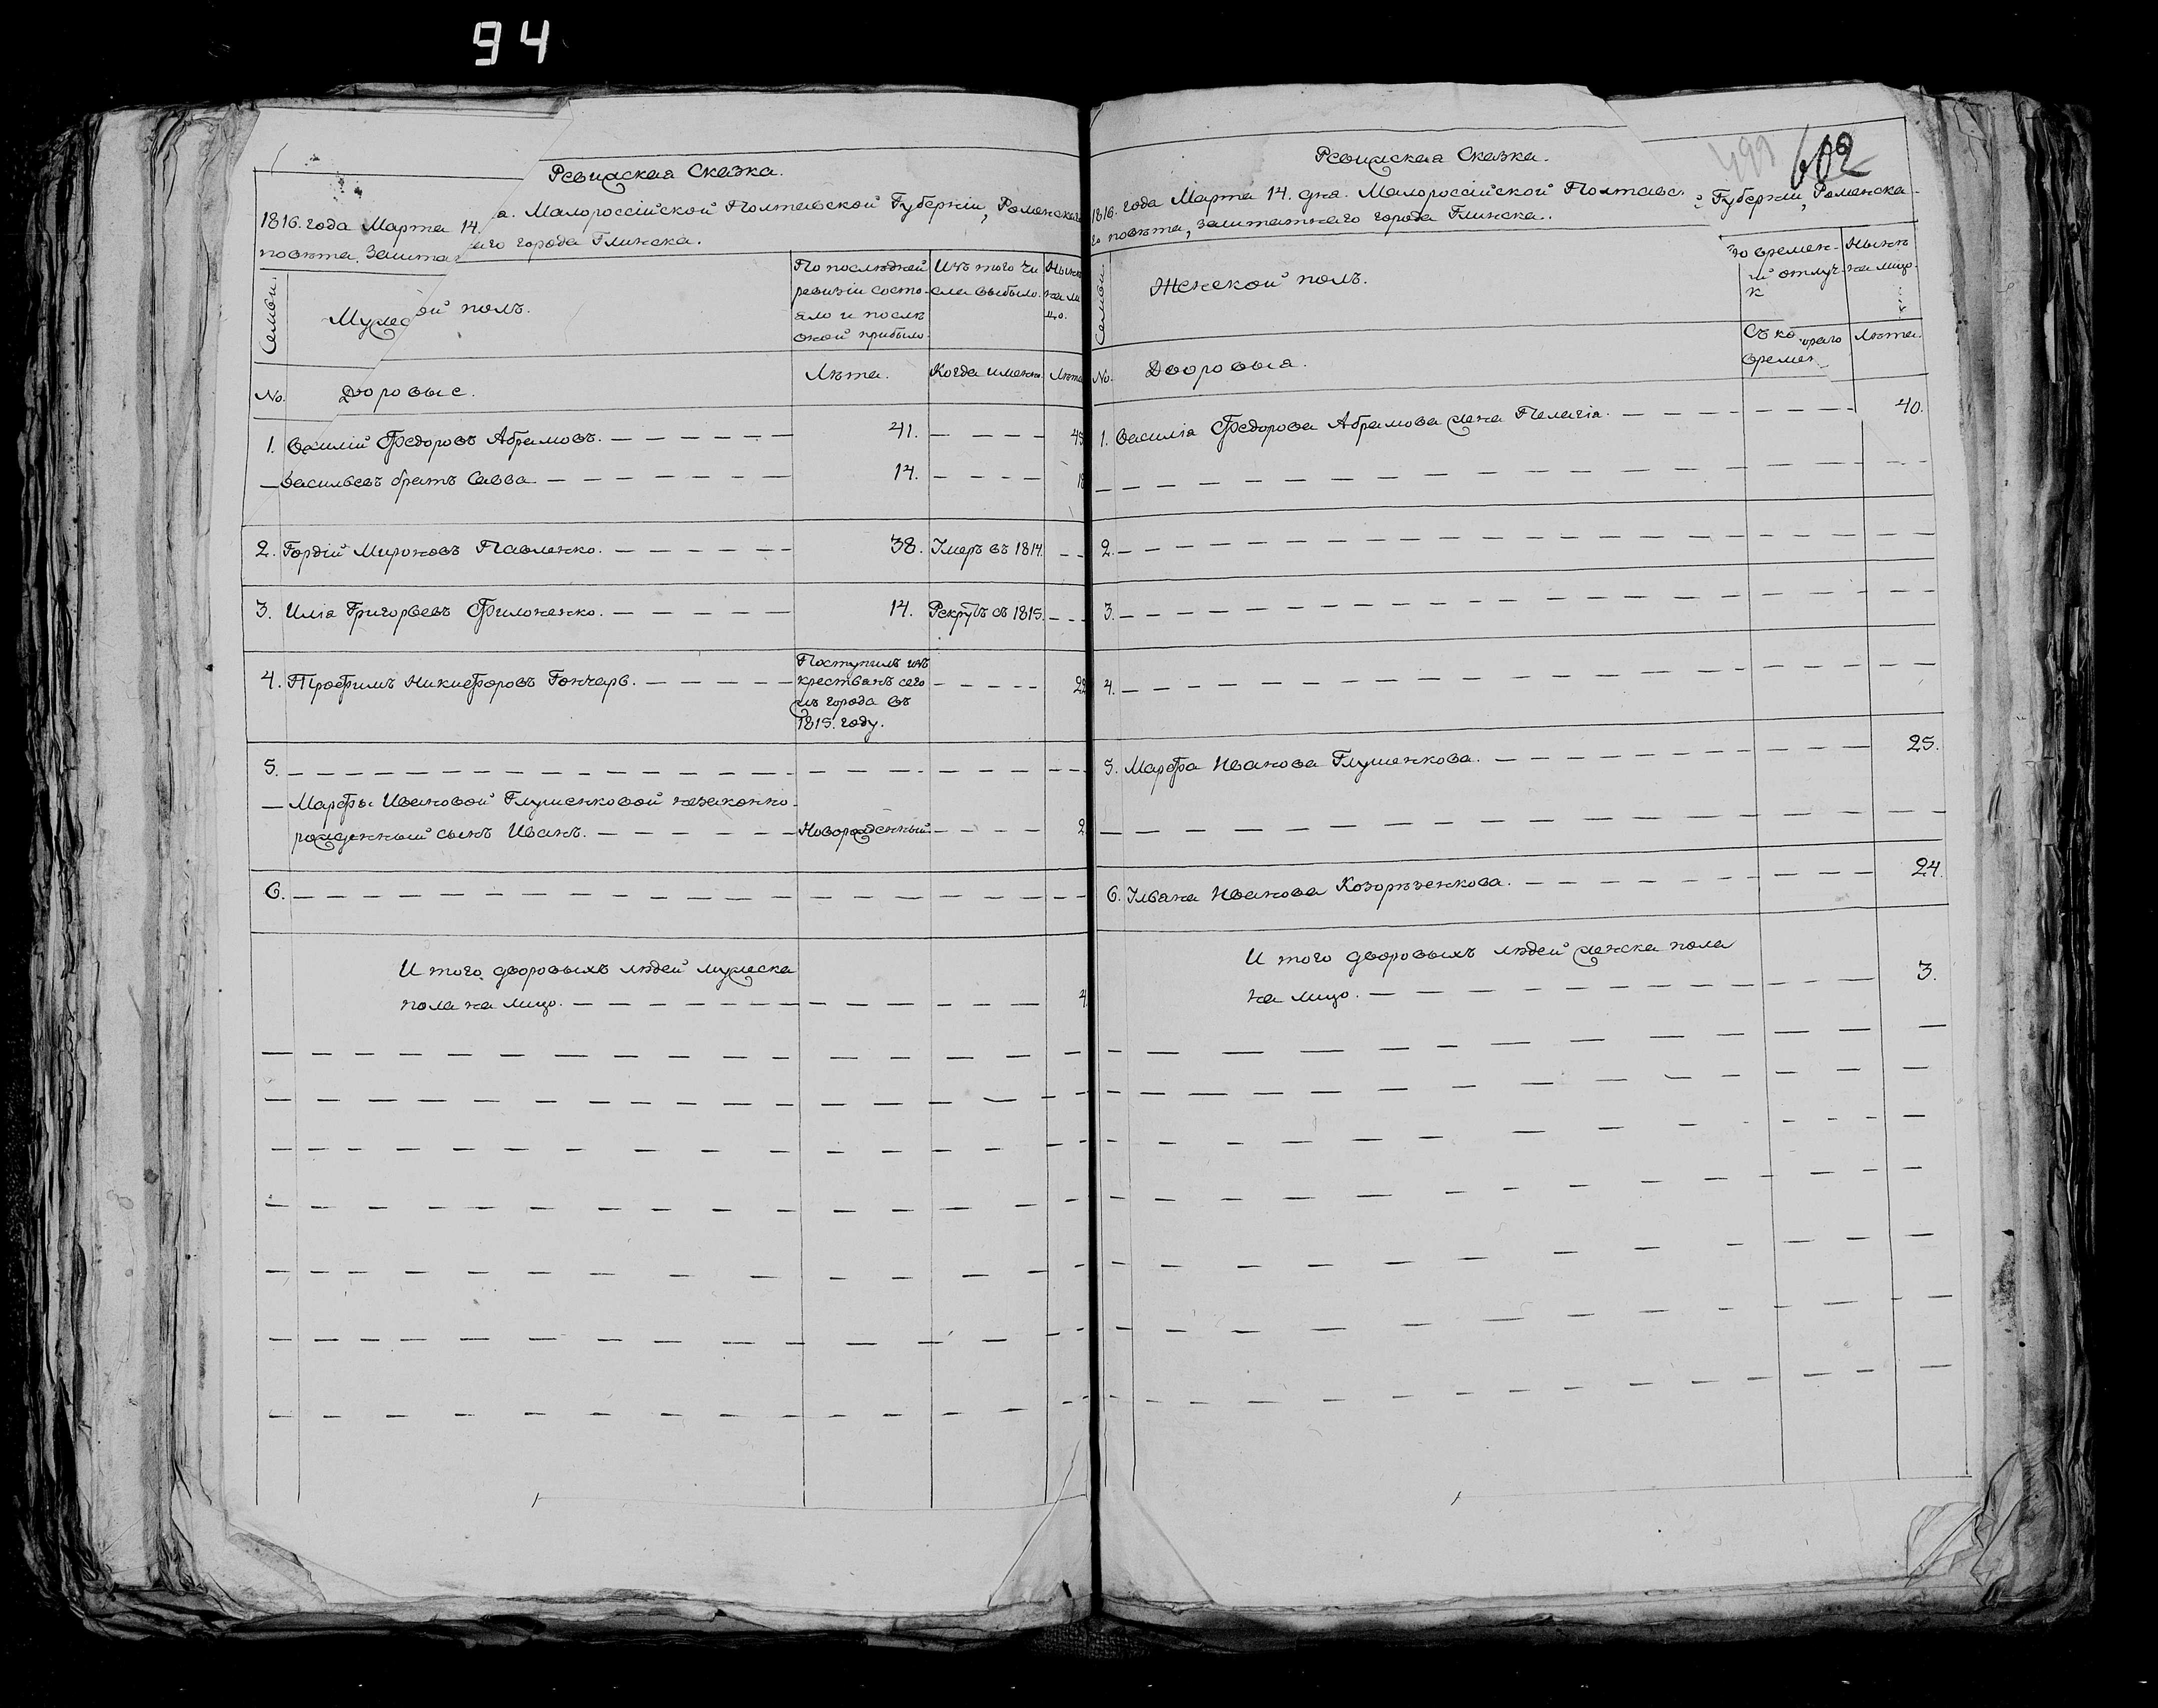 94
Ревижская Сказка.
1816. года Марта 14. а. Малороссійской Полтавской Губерніи, Роменскаго
повѣта, Зашта аго города Глинска.
Семьи.
Мужес ой полъ.
По послѣдней
ревизіи состо-
яло и послѣ
оной прибыло.
Изъ того чи
сла выбыло.
Нынѣ
на ли
цо.
No.
Дворовые.
Лѣта.
Когда именно.
Лѣта
1. Василій Федоровъ Абрамовъ. 41. 45
Васильевъ братъ Савва. 14. 18
2. Гордій Мироновъ Павленко. 38. Умеръ въ 1814.
3. Иліа Григорьевъ Филоненко. 14. Рекрутъ съ 1815.
4. Трофимъ Никифоровъ Гончаръ.
Поступилъ изъ
крестьянъ сего
жъ города въ
1815. году.
22
5.
Марфы Ивановой Глушенковой незаконно-
рожденный сынъ Иванъ. Новорожденный. 2
6.
И того дворовыхъ людей мужеска
пола на лицо. 4
602
499
Ревижская Сказка.
1816. года Марта 14. дня. Малороссійской Полтавс. Губерніи, Роменска-
го повѣта, заштатнаго города Глинска.
Семьи.
Женской полъ.
Во времен-
й отлуч-
к
Нынѣ
на лицо.
No.
Дворовыа.
Съ ко ораго
времен
Лѣта.
1. Василіа Федорова Абрамова жена Пелагіа. 40.
2.
3.
4.
5. Марфа Иванова Глушенкова. 25.
6. Ульана Иванова Козорѣзенкова. 24.
И того дворовыхъ людей женска пола
на лицо. 3.